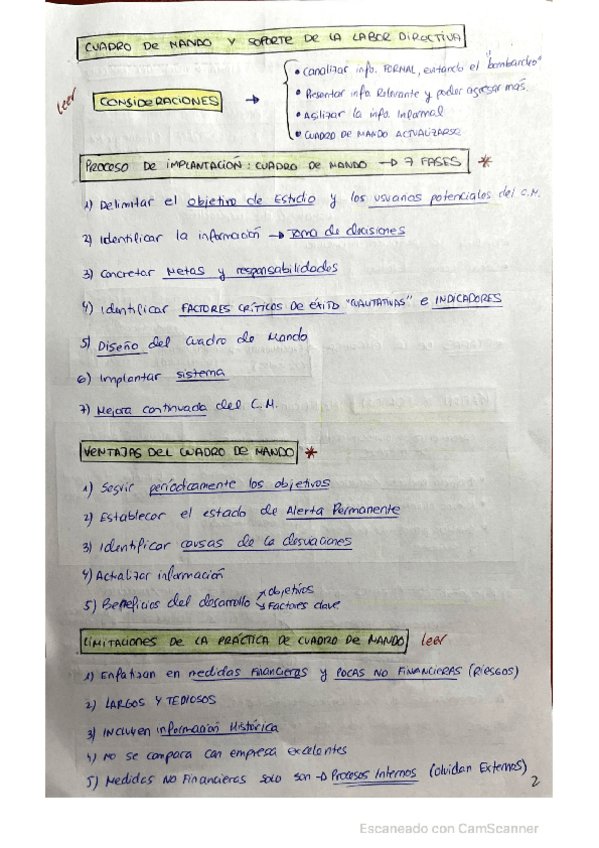 CUADRO DE MANDO Y SOPORTE DE LA LABOR DIRECTIVA
leer
CONSIDERACIONES →
• Canalizar info. FORMAL, evitando el "bombardeo"
• Presentar info Relevante y poder agregar más.
• Agilizar la info Informal
• CUADRO DE MANDO ACTUALIZARSE
PROCESO DE IMPLANTACIÓN: CUADRO DE MANDO → 7 FASES *
1) Delimitar el objetivo de Estudio y los usuarios potenciales del C.M.
2) Identificar la información → Toma de decisiones
3) Concretar Metas y responsabilidades
4) Identificar FACTORES CRÍTICOS DE ÉXITO "CUALITATIVAS" e INDICADORES
5) Diseño del Cuadro de Mando
6) Implantar sistema
7) Mejora continuada del C.M.
VENTAJAS DEL CUADRO DE MANDO *
1) Seguir periódicamente los objetivos
2) Establecer el estado de Alerta Permanente
3) Identificar causas de la desviaciones
4) Actualizar información
5) Beneficios del desarrollo → objetivos
→ Factores clave
LIMITACIONES DE LA PRÁCTICA DE CUADRO DE MANDO leer
1) Enfatizan en medidas financieras y POCAS NO FINANCIERAS (Riesgos)
2) LARGOS Y TEDIOSOS
3) INCLUYEN información Histórica
4) NO se compara con empresa excelentes
5) Medidas NO Financieras solo son → Procesos Internos (olvidan Externos)
2
Escaneado con CamScanner